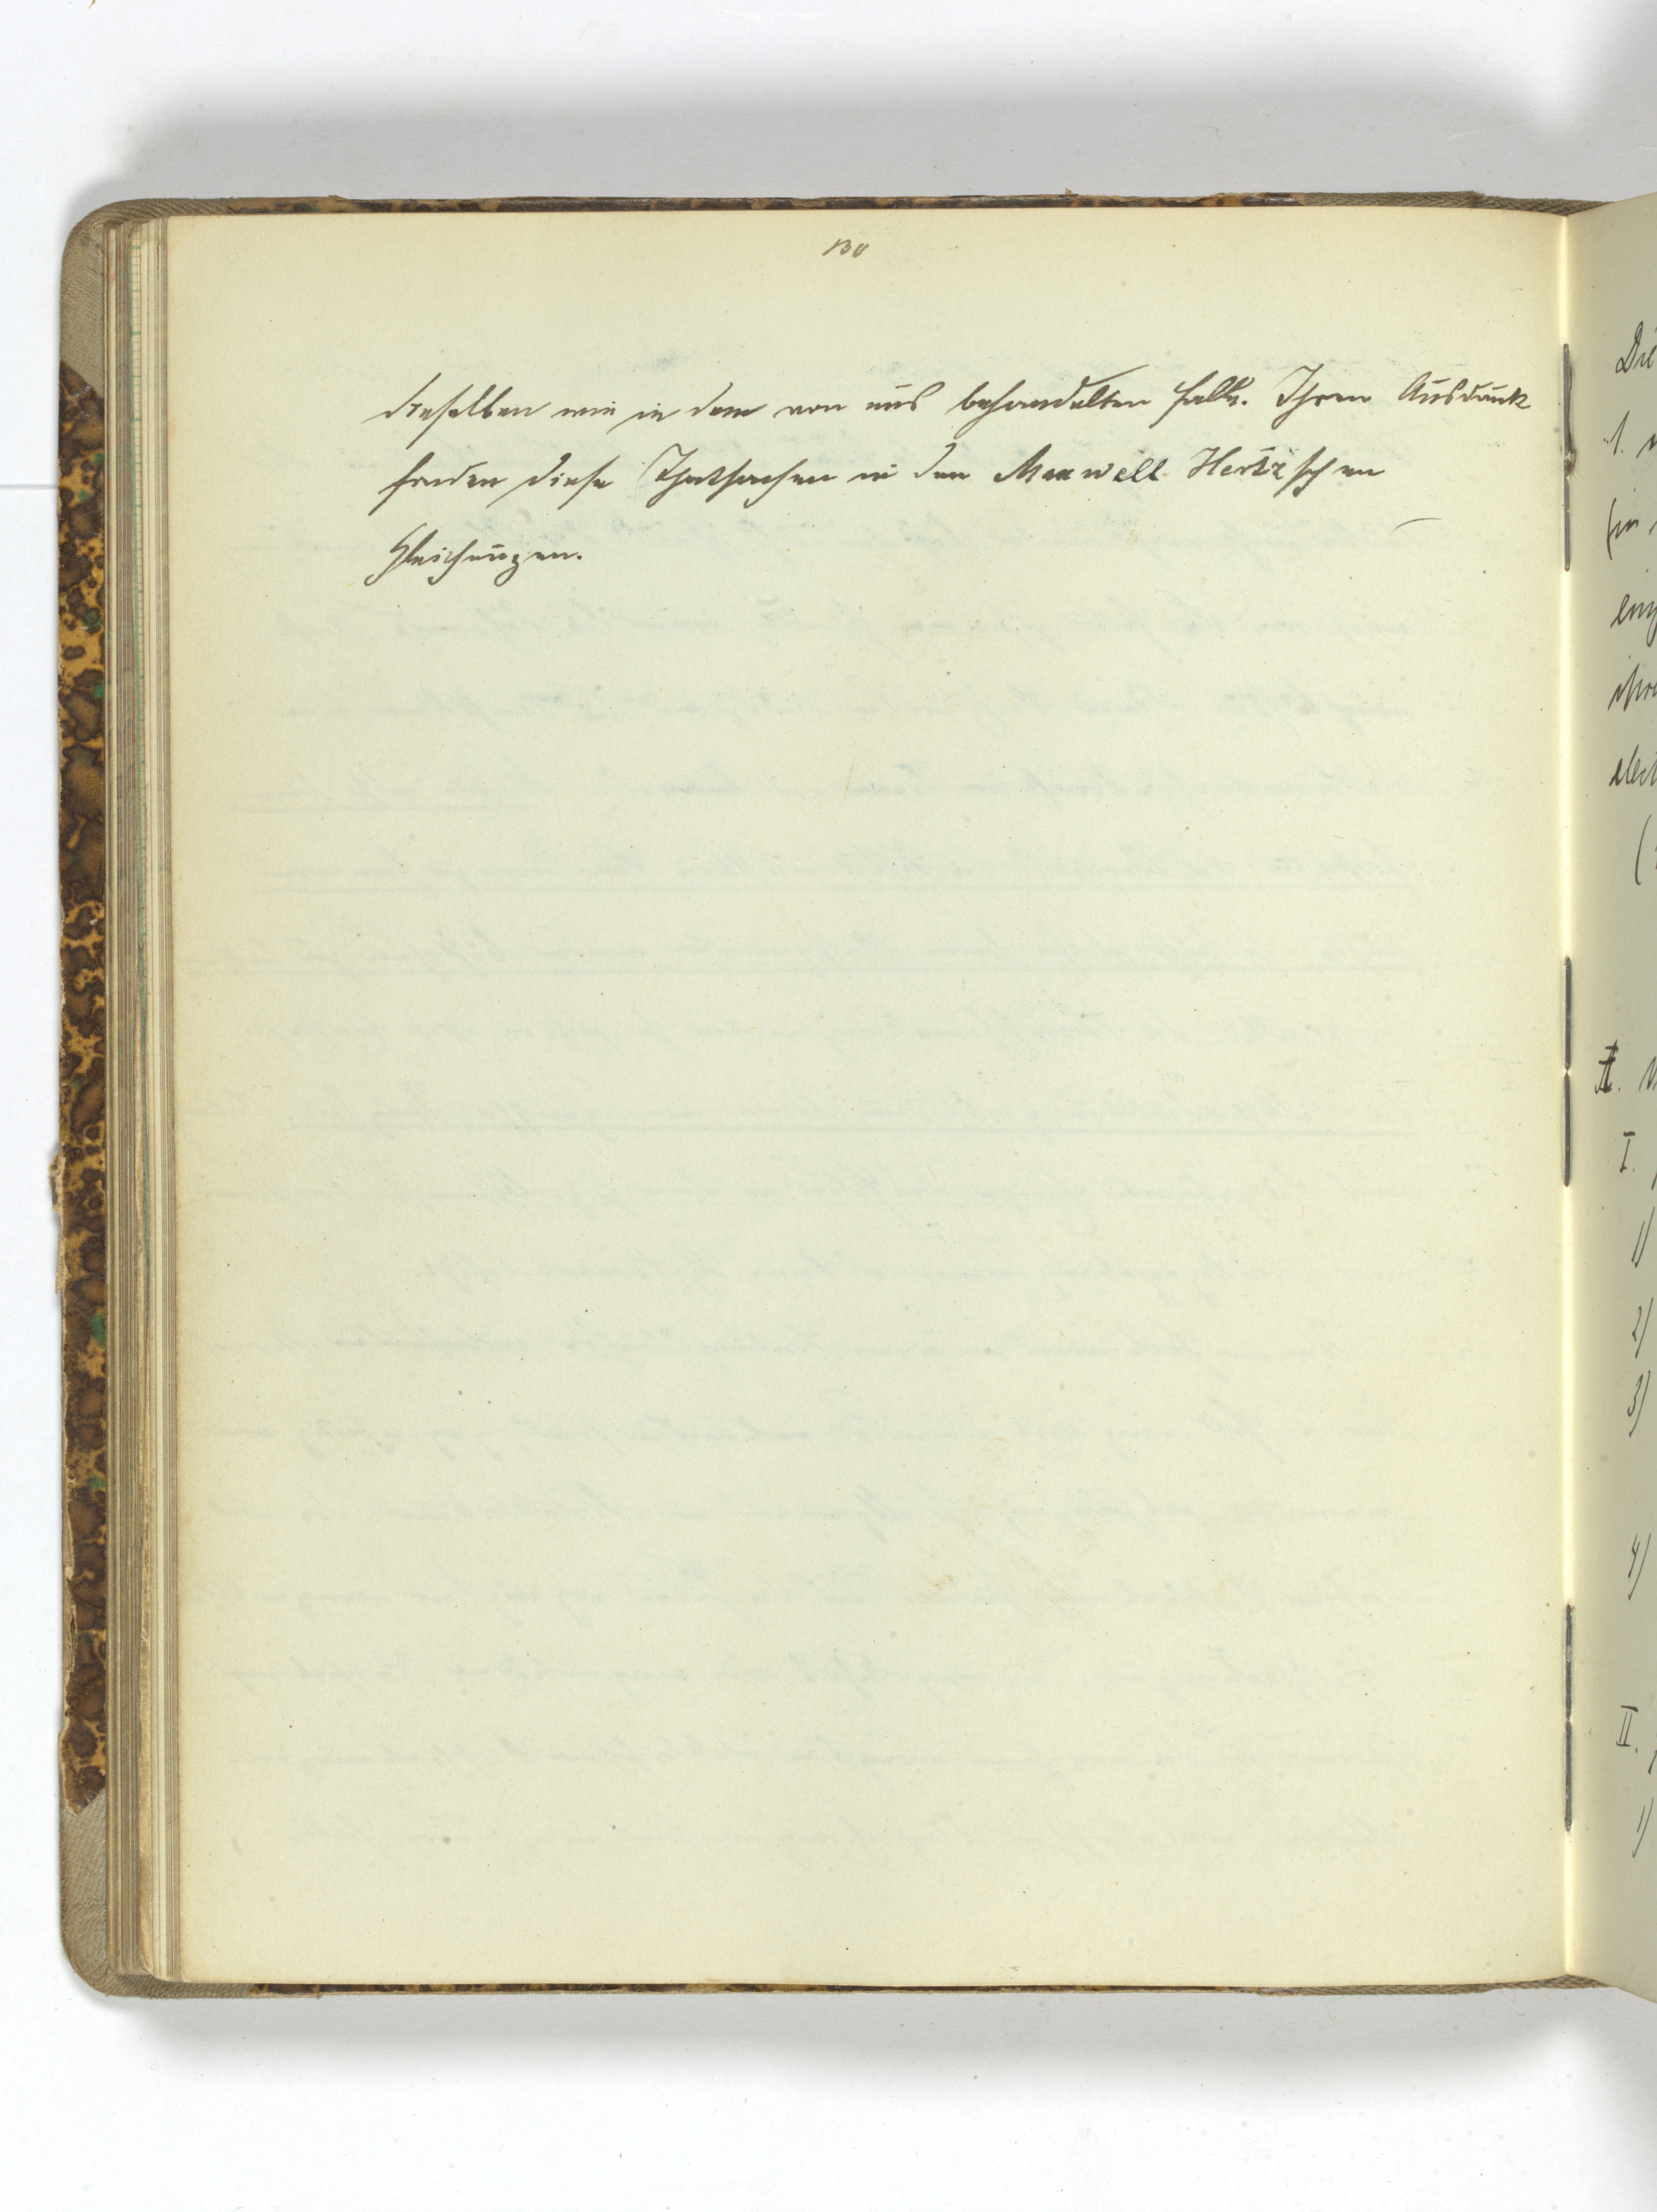 130
dieselben wie in dem von uns behandelten Falle. Ihren Ausdruck
finden diese Thatsachen in den Maxwell Hertz'schen
Gleichungen.
Die
1.
elect
I.
1)
2)
3)
4)
II.
1)